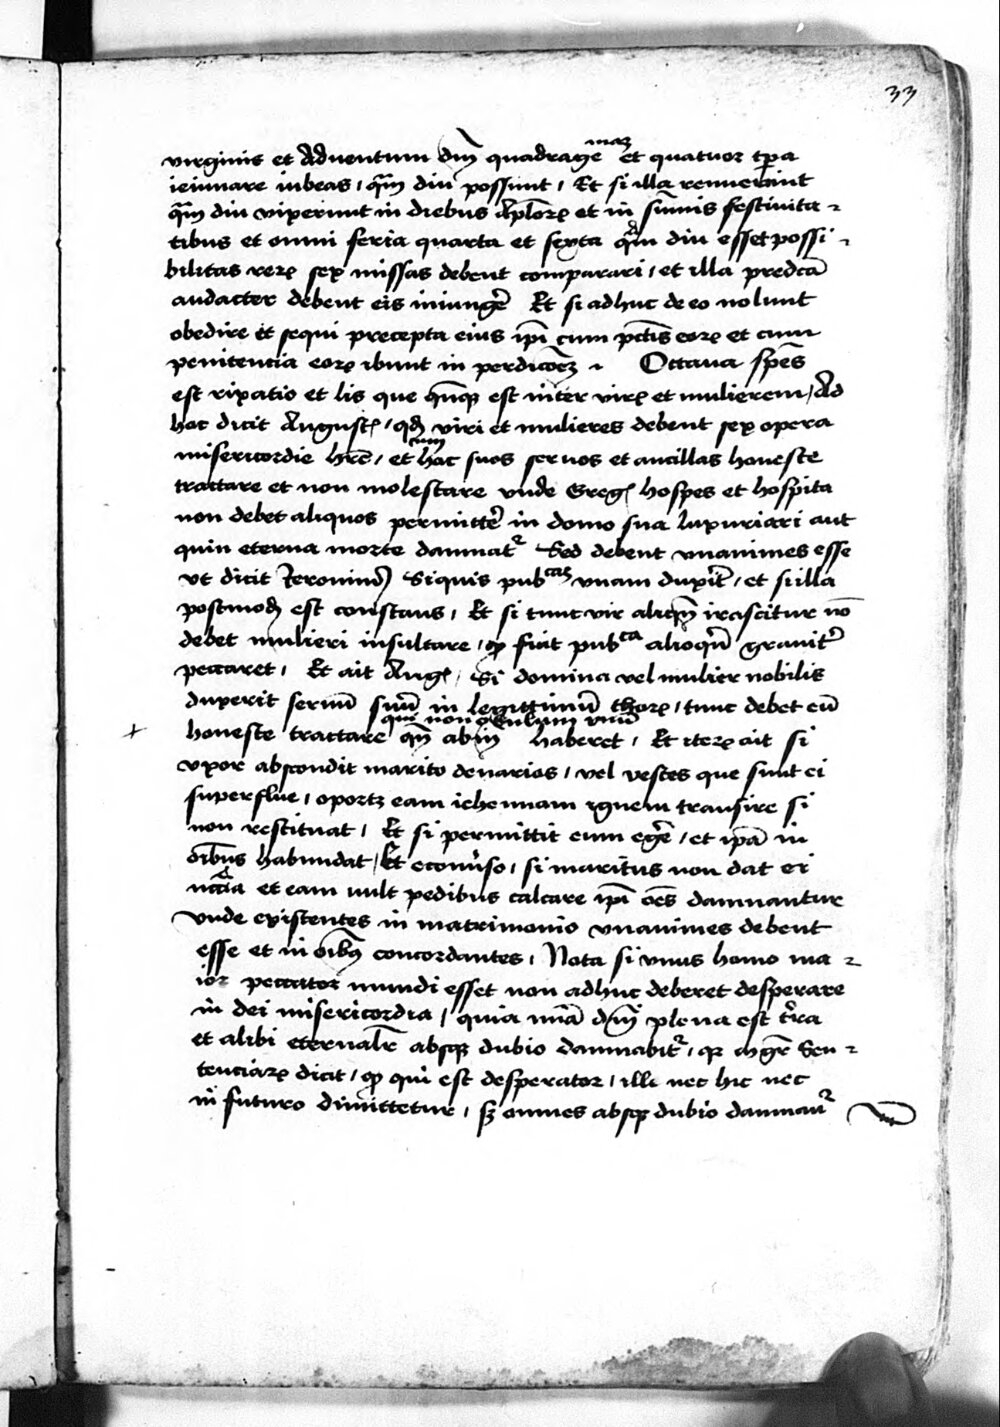 33
virginis et Aduentum dnj quadragemaꝫ et quatuor tp̄a
ieiunare iubeas / qm̄ diu possunt / Et si illa rennerint
qm̄ diu vixerunt in diebus Apl̄oꝝ et in sūmis festiuita-
tibus et omni feria quarta et sexta qm̄ diu esset possi-
bilitas reꝝ sex missas debent comparari / et illa predcā
audacter debent eis iniunge᷑ Et si adhuc de eo nolunt
obedire et sequi precepta eius ip̄i cum pctīs eoꝝ et cum
penitencia eoꝝ ibunt in perdicōeꝫ Octaua spēs
est rixatio et lis que qn̄qꝫ est inter viꝝ et mulierem / Ad
hoc dicit Augustꝰ / qd̄ viri et mulieres debent sex opera
misericordie hr̄e / et cum hoc suos seruos et ancillas honeste
tractare et non molestare vnde Greg hospes et hospita
non debet aliquos permitte᷑ in domo sua luxuriari aut
quin eterna morte damnat᷑ Sed debent vnanimes esse
vt dicit Jeronimꝰ Siquis pubcaꝫ vnam duxit᷑ / et si illa
postmodū est constans / Et si tunc vir aliqn̄ irascitur nō
debet mulieri insultare / qꝫ fuit pubca alioqn̄ grauit᷑
peccaret / Et ait Aug / Si domina vel mulier nobilis
duxerit seruū suū in legittimū thoꝝ / tunc debet eū
honeste tractare qui non oculum vnū haberet / Et iteꝝ ait si
vxor abscondit marito denarios / vel vestes que sunt ei
superflue / oportꝫ eam iehennam ignem transire si
non restituat / Et si permittit eum ege᷑ / et ip̄a in
oībus habundat / Et econūso / si maritus non dat ei
nccīa et eam vult pedibus calcare ip̄i oēs damnantur
vnde existentes in matrimonio vnanimes debent
esse et in oībꝰ concordantes / Nota si vnus homo ma-
ior peccator mundi esset non adhuc deberet desperare
in dei misericordia / quia mīa dnj plena est t᷑ra
et alibi eternalr̄ absqꝫ dubio damnabit᷑ / qꝛ mgr̄ Sen-
tenciaꝝ dicit / qꝫ qui est desperator / illi nec hic nec
in futuro dimittetur / sꝫ omnes absqꝫ dubio damnant᷑